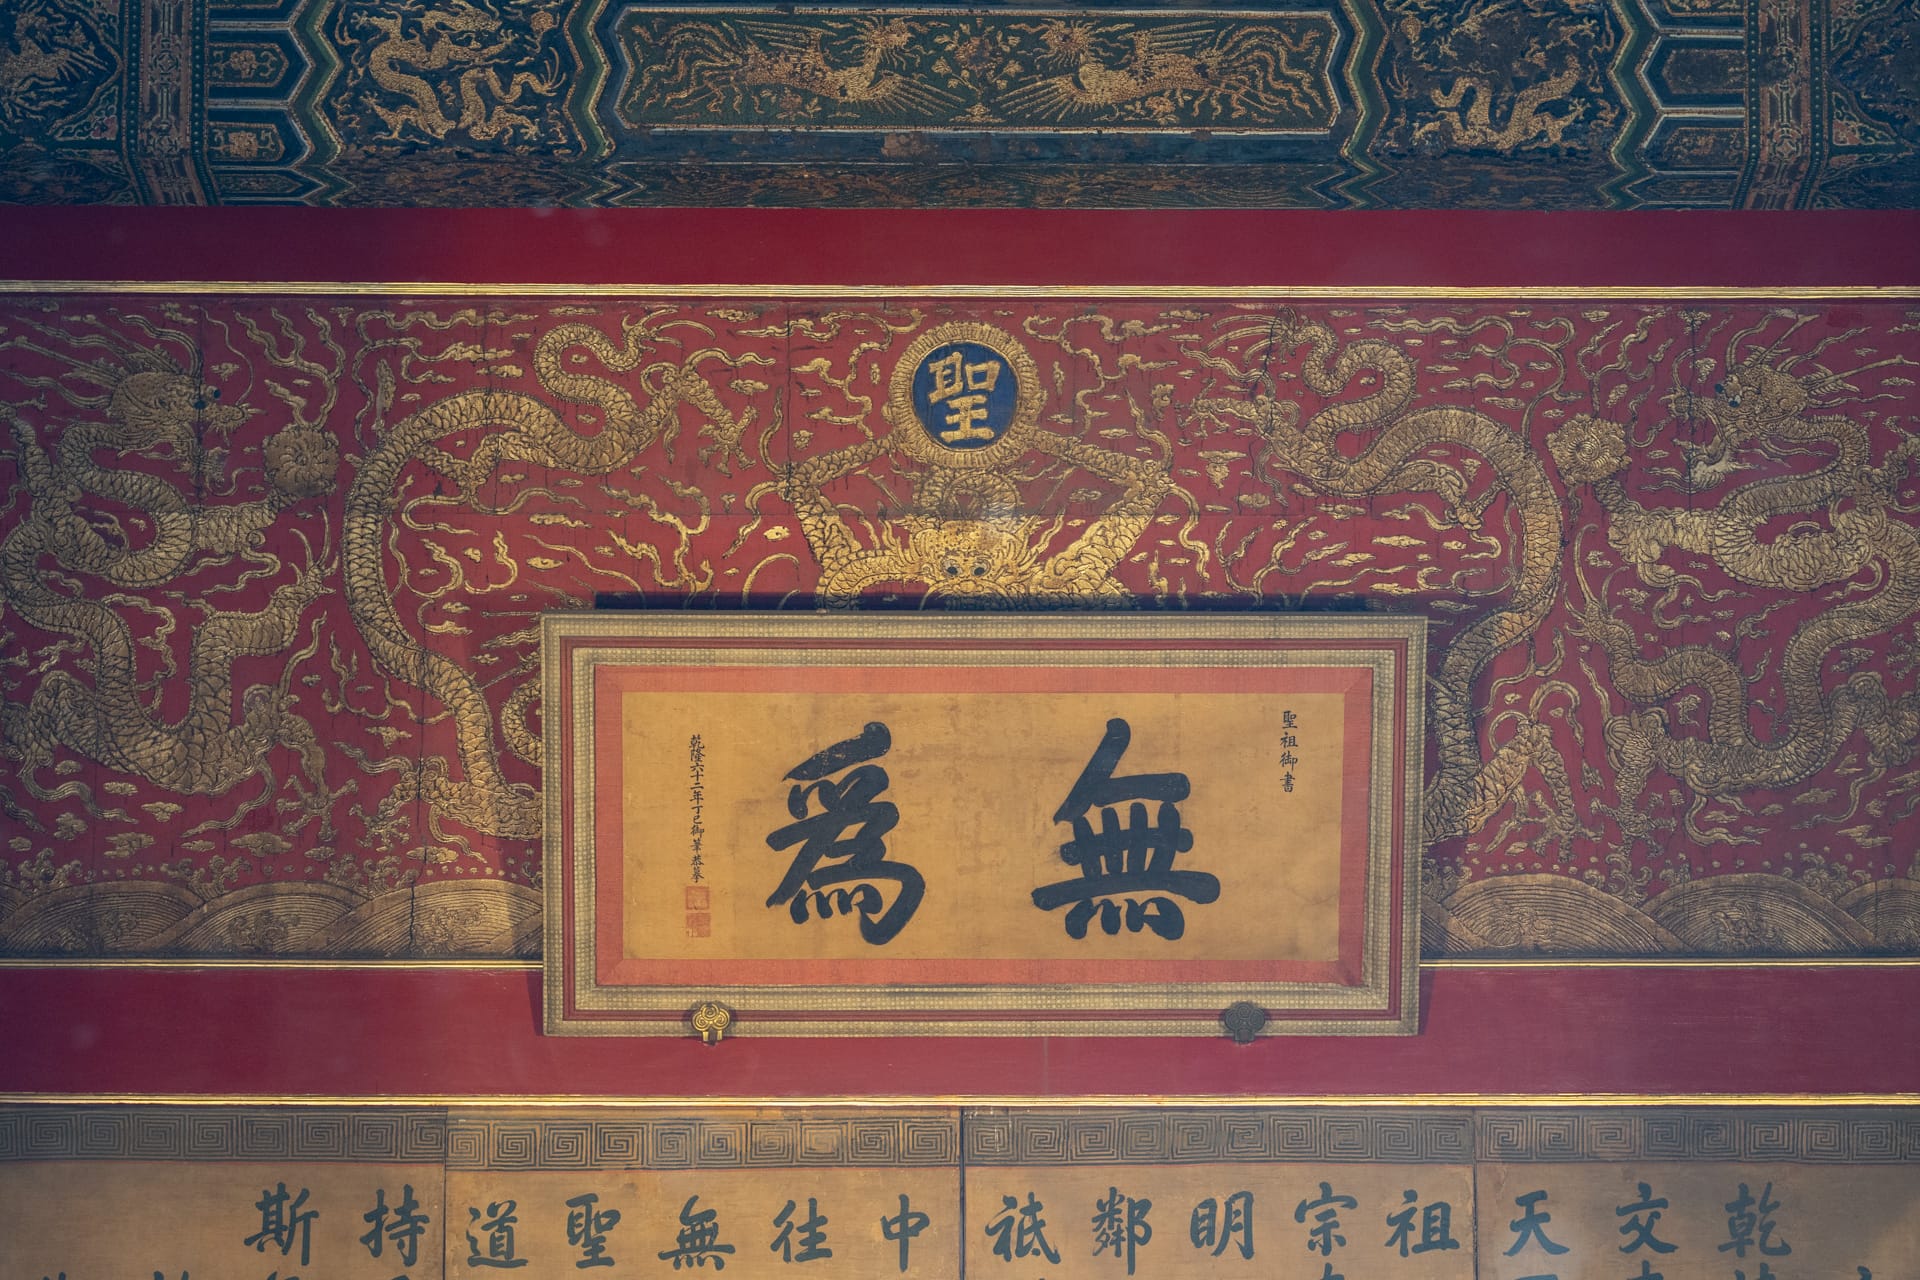 聖
聖祖御書
無爲
乾隆六十二年丁巳御筆恭摹
乾
交
天
祖
宗
明
鄰
祗
中
往
無
聖
道
持
斯